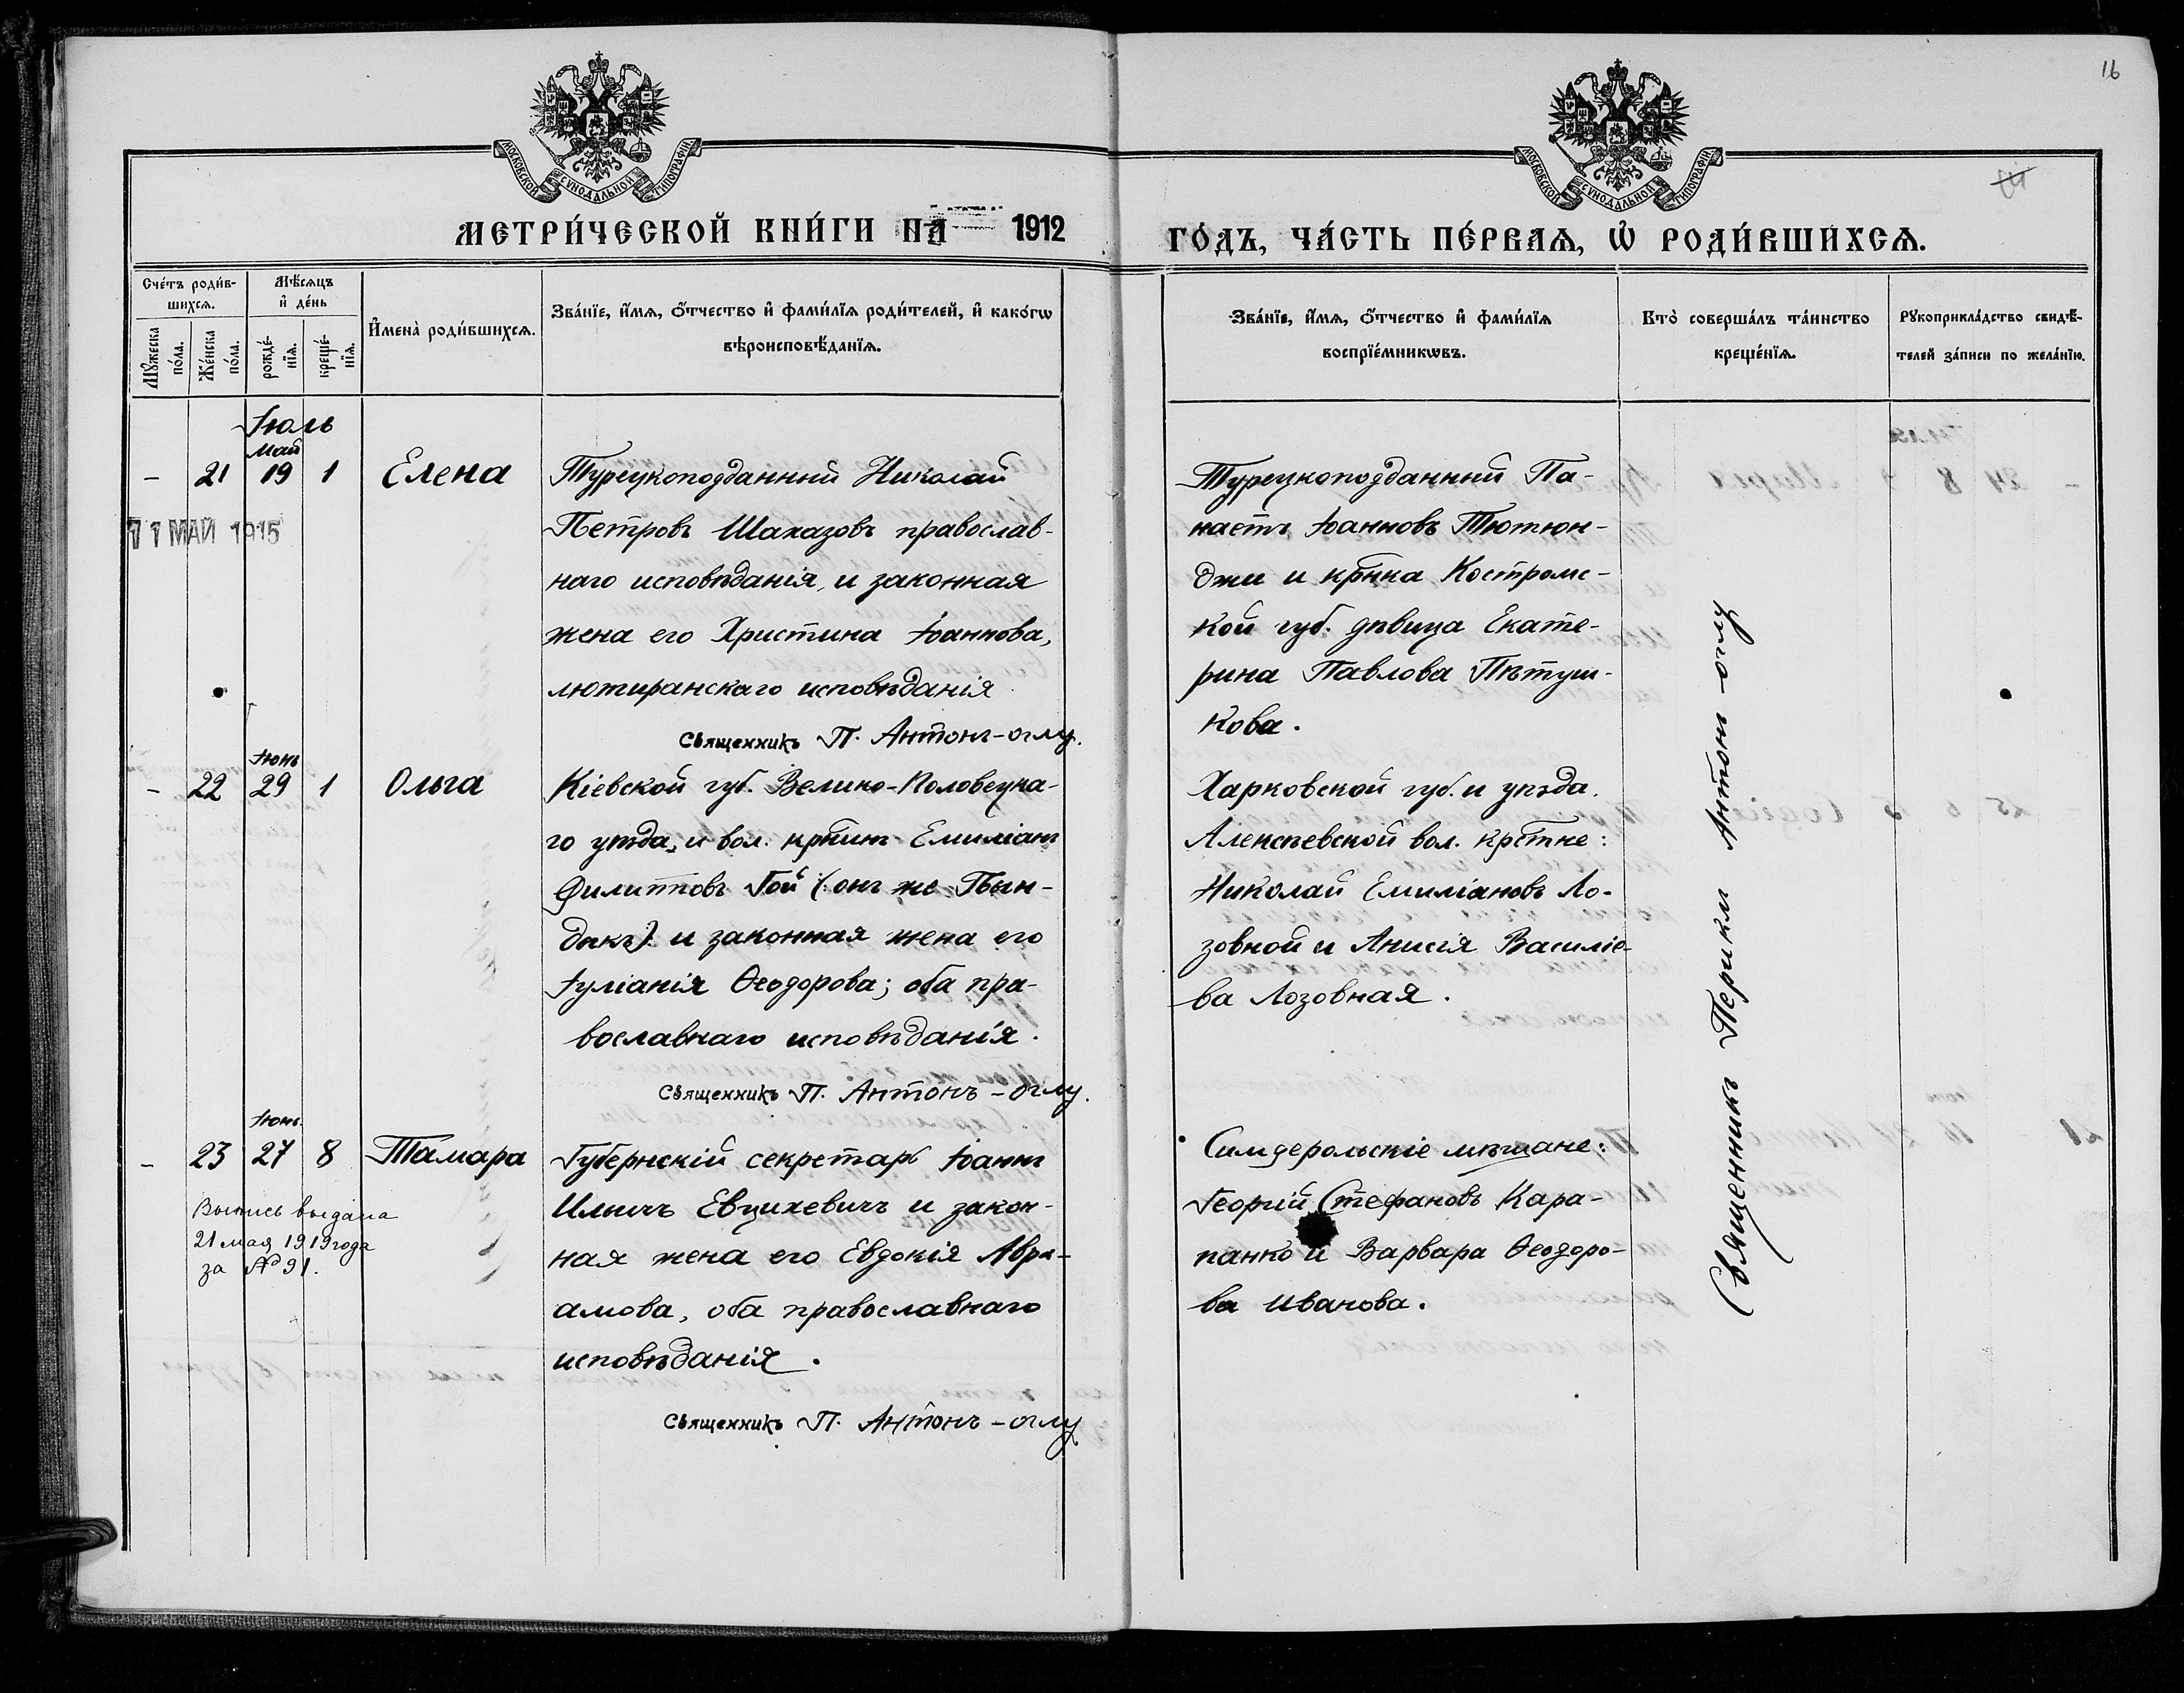 16
МОСКОВСКОЙ СѴНОДАЛЬНОЙ ТИПОГРАФІИ
МОСКОВСКОЙ СѴНОДАЛЬНОЙ ТИПОГРАФІИ
МЕТРИ́ЧЕСКОЙ КНИ́ГИ НА 1912
ГО́ДЪ, ЧА́СТЬ ПЕ́РВАѦ, Ѡ҆ РОДИ́ВШИХСѦ.
Сче́тъ роди́в-
шихсѧ.
Мꙋжеска по́ла.
Же́нска по́ла.
Мѣ́сѧцъ
и҆ де́нь
рожде́-
нїѧ.
креще́-
нїѧ.
И҆мена̀ роди́вшихсѧ.
Зва́нїе, и҆́мѧ, ѻ҆́тчество и҆ фами́лїѧ роди́телей, и҆ како́гѡ
вѣроисповѣ́данїѧ.
Зва́нїе, и҆́мѧ, ѻ҆́тчество и҆ фами́лїѧ
воспрїе́мникѡвъ.
Кто̀ соверша́лъ та́инство
креще́нїѧ.
Рꙋкоприкла́дство свидѣ́-
телей за́писи по жела́нїю.
Іюль
Май
- 21 19 1 Елена
11 МАЙ 1915
Турецкоподданный Николай
Петровъ Шаказовъ православ-
наго исповѣданія, и законная
жена его Христина Іоаннова,
лютиранскаго исповѣданія
Священникъ П. Антонъ-оглу.
Турецкоподданный Па-
наетъ Іоанновъ Тютюн-
джи и крнка Костромс-
кой губ. дѣвица Екате-
рина Павлова Пѣтуш-
кова.
Іюнь
- 22 29 1 Ольга
Кіевской губ. Велико-Половецка-
го уѣзда, и вол. кртинъ Емиліанъ
Филипповъ Гой (: онъ же Пын-
дыкъ): и законная жена его
Іуліанія Ѳеодорова; оба пра-
вославнаго исповѣданія.
Священникъ П. Антонъ-оглу.
Харковской губ. и уѣзда.
Алексѣевской вол. крстне:
Николай Емиліановъ Ло-
зовной и Анисія Василіе-
ва Лозовная.
Іюнь
- 23 27 8 Тамара
Выпись выдана
21 мая 1919 года
за № 91.
Губернскій секретарь Іоаннъ
Ильичъ Евцихевичъ и закон-
ная жена его Евдокія Авра-
амова, оба православнаго
исповѣданія.
Священникъ П. Антонъ-оглу
Симферопольскіе мѣщане:
Георгій Стефановъ Кара-
панко и Варвара Ѳеодоро-
ва Иванова.
Священникъ Периклъ Антонъ-оглу